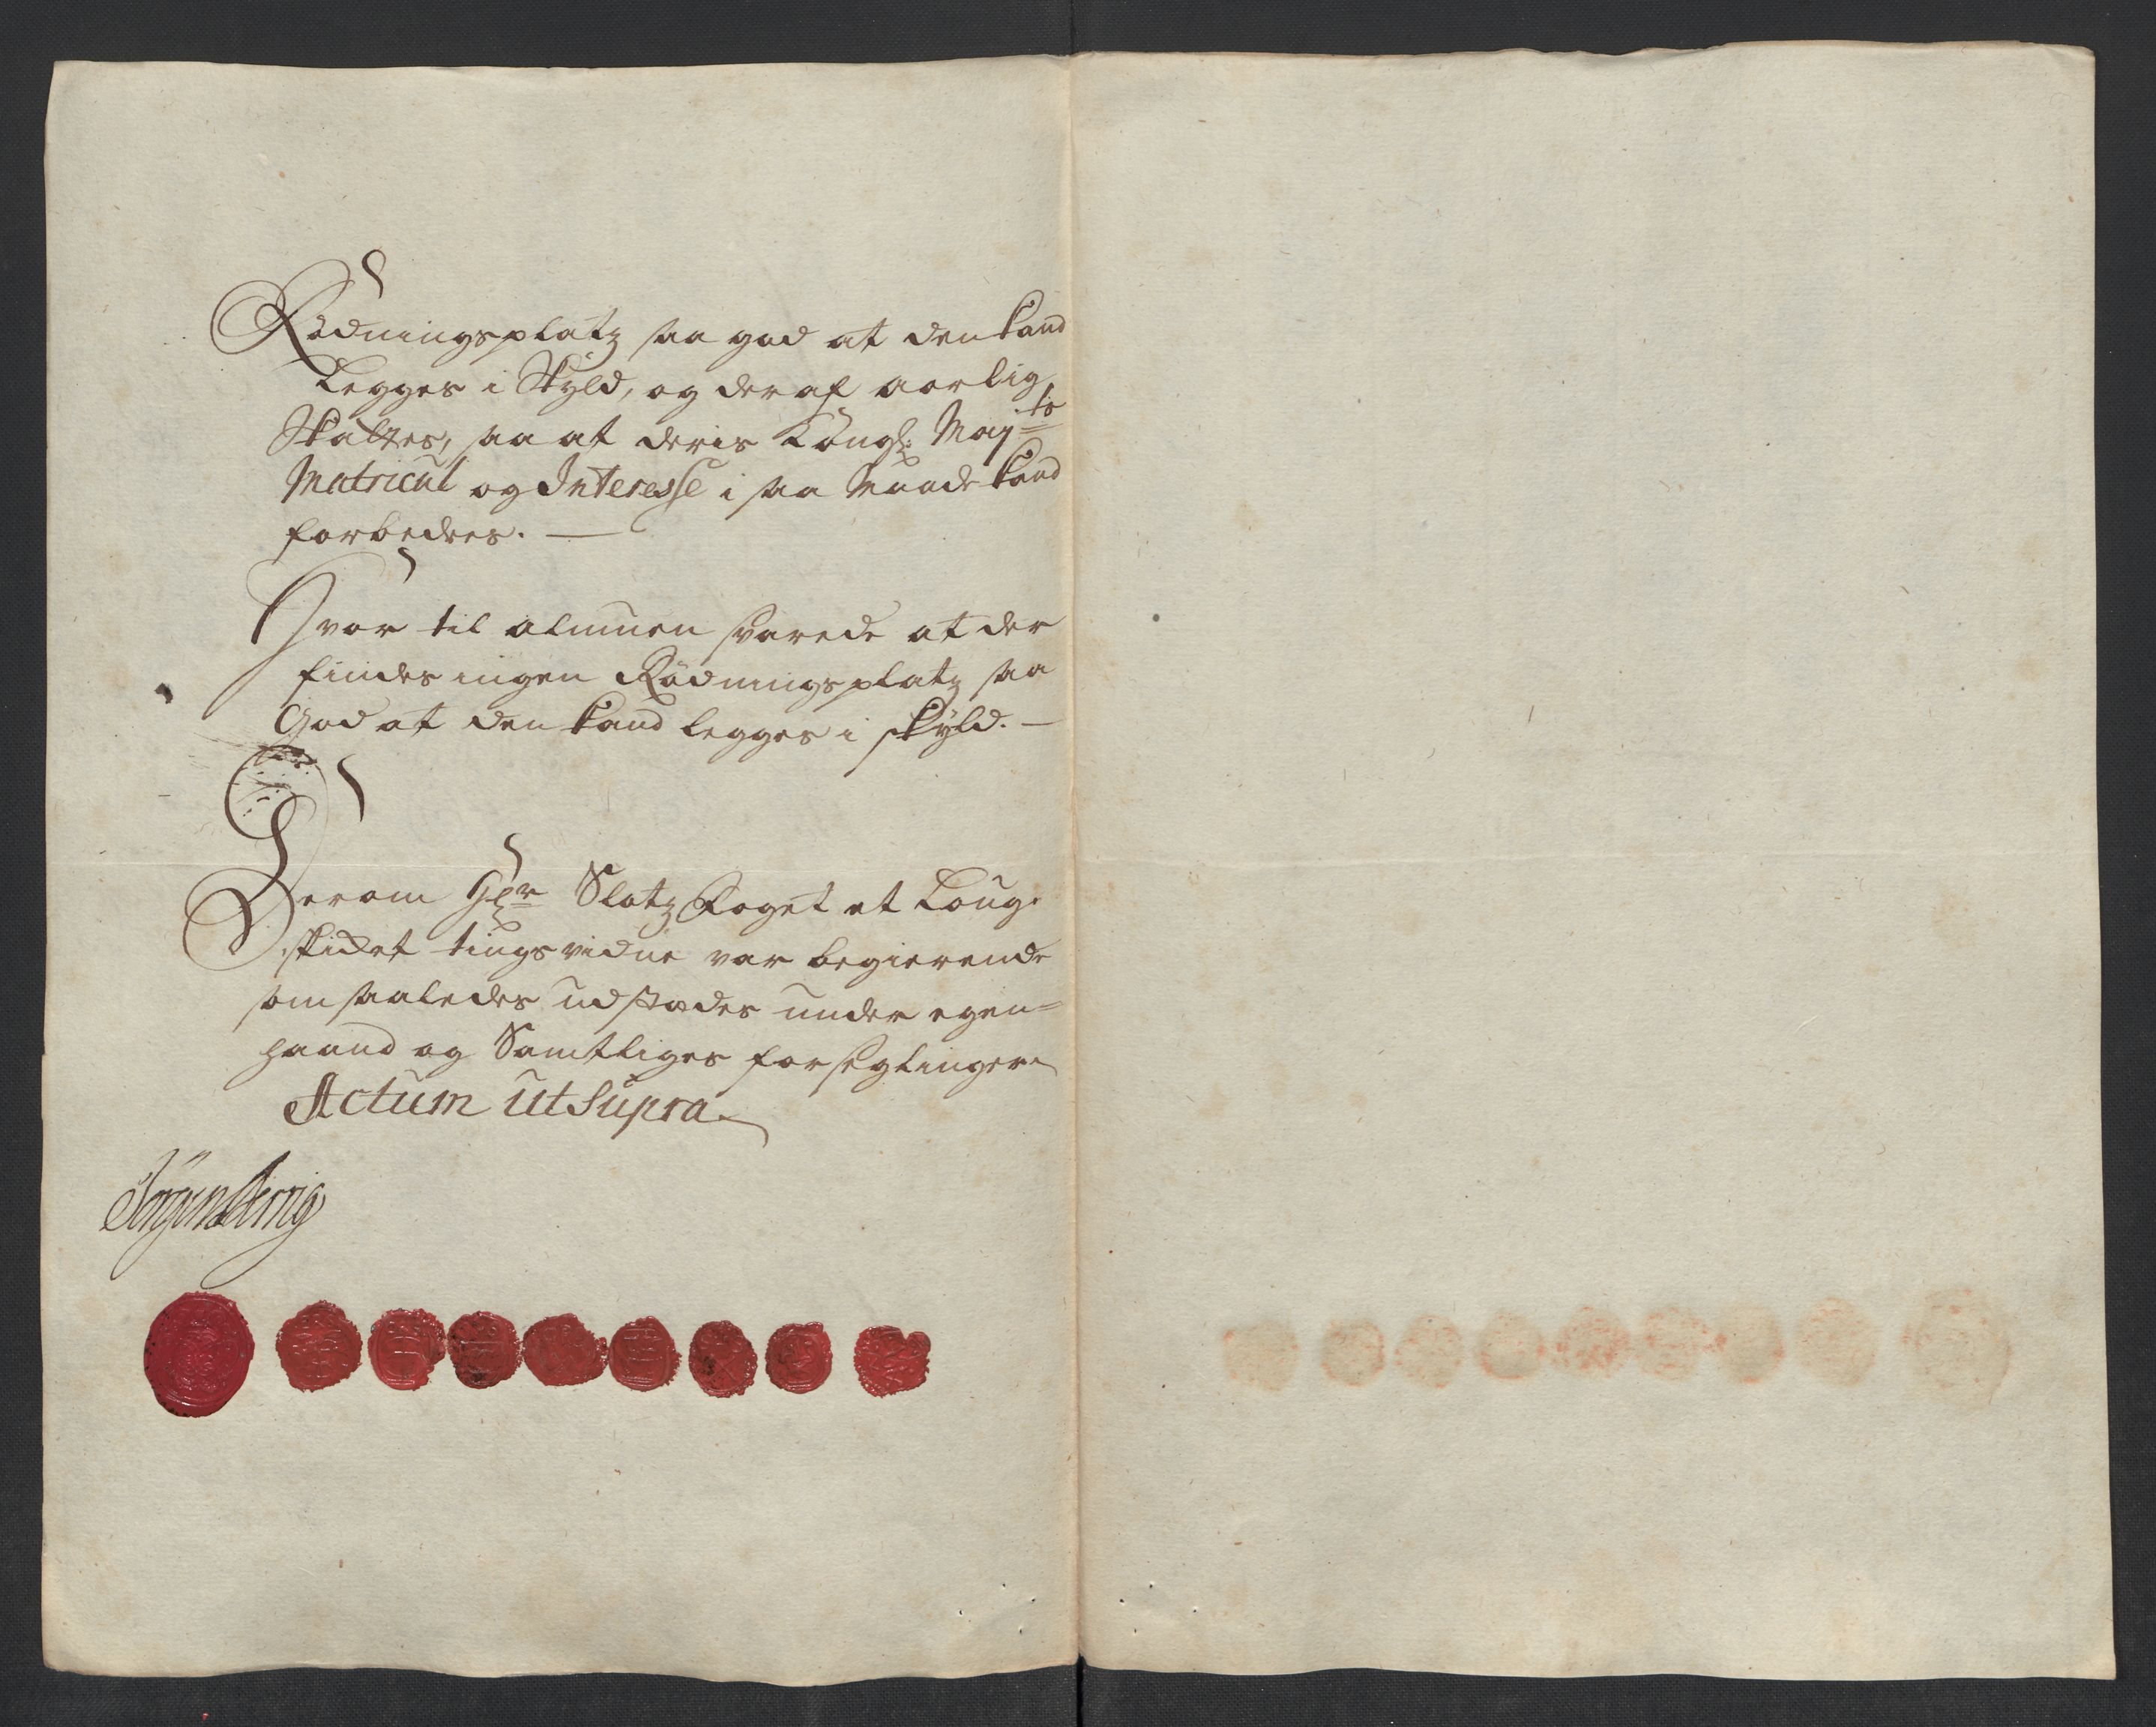 Rödningsplatz saa god at den kand
Legges i Skyld, og der af aarlig
Skattes, saa at deris Kongl: Maj<sup>ts</sup>
Matricul og Interesse i saa Maade kand
forbedres. —
Hvor til almuen svarede at der
findes ingen Rödningsplatz saa
God at den kand legges i skyld. —
Derom Hr Slotz Foget et Loug
skicket tingsvidne var begierende
som saaledes udstædes under egen-
haand og Samtliges forseglinger
Actum ut Supra